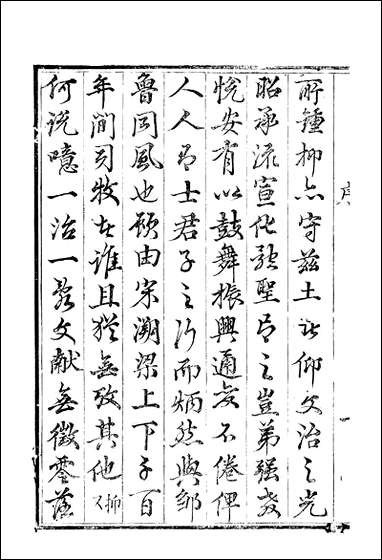 所鍾抑亦守茲土者仰文治之光
昭承流宣化歌聖之豈弟强教
悅安有以鼓舞振興通變不倦俾
人人士君子之行而炳然與鄒
魯同風也顧由宋溯梁上下千百
年間司牧者誰且猶無攷其他抑
何說噫一治一亂文獻無徵零落